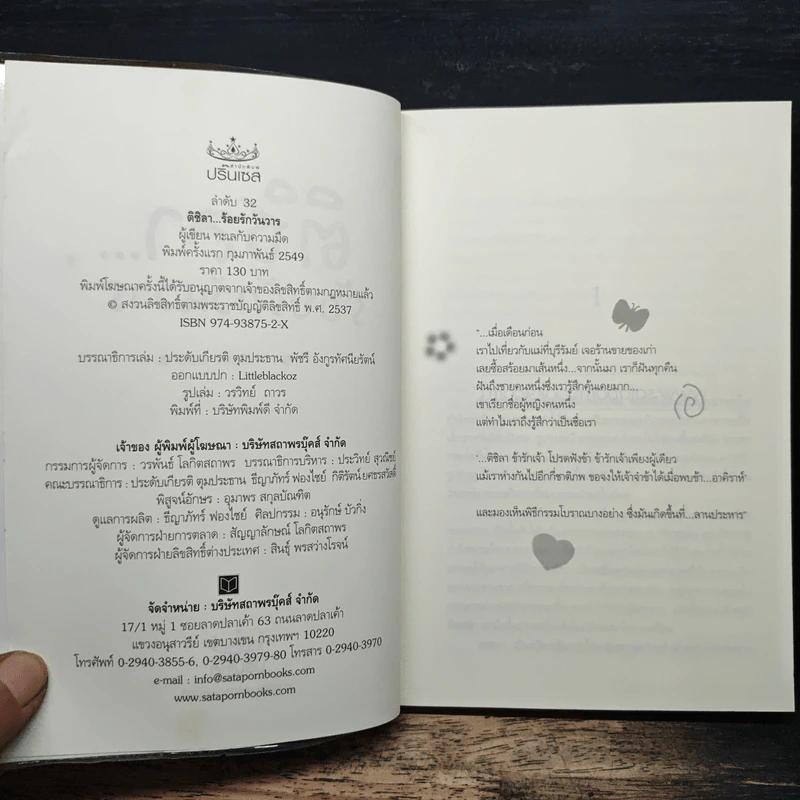 สำนักพิมพ์
ปริ๊นเซส
ลำดับ 32
ติชิลา...ร้อยรักวันวาร
ผู้เขียน ทะเลกับความมืด
พิมพ์ครั้งแรก กุมภาพันธ์ 2549
ราคา 130 บาท
พิมพ์โฆษณาครั้งนี้ได้รับอนุญาตจากเจ้าของลิขสิทธิ์ตามกฎหมายแล้ว
© สงวนลิขสิทธิ์ตามพระราชบัญญัติลิขสิทธิ์ พ.ศ. 2537
ISBN 974-93875-2-X
บรรณาธิการเล่ม : ประดับเกียรติ ตุมประธาน พัชรี อังกูรทัศนียรัตน์
ออกแบบปก : Littleblackoz
รูปเล่ม : วรวิทย์ ถาวร
พิมพ์ที่ : บริษัทพิมพ์ดี จำกัด
เจ้าของ ผู้พิมพ์ผู้โฆษณา : บริษัทสถาพรบุ๊คส์ จำกัด
กรรมการผู้จัดการ : วรพันธ์ โลกิตสถาพร บรรณาธิการบริหาร : ประวิทย์ สุวณิชย์
คณะบรรณาธิการ : ประดับเกียรติ ตุมประธาน ธีญาภัทร์ ฟองไชย์ กิติรัตน์ ยศธรสวัสดิ์
พิสูจน์อักษร : อุมาพร สกุลบัณฑิต
ดูแลการผลิต : ธีญาภัทร์ ฟองไชย์ ศิลปกรรม : อนุรักษ์ บัวกิ่ง
ผู้จัดการฝ่ายการตลาด : สัญญาลักษณ์ โลกิตสถาพร
ผู้จัดการฝ่ายลิขสิทธิ์ต่างประเทศ : สินธุ์ พรสว่างโรจน์
จัดจำหน่าย : บริษัทสถาพรบุ๊คส์ จำกัด
17/1 หมู่ 1 ซอยลาดปลาเค้า 63 ถนนลาดปลาเค้า
แขวงอนุสาวรีย์ เขตบางเขน กรุงเทพฯ 10220
โทรศัพท์ 0-2940-3855-6, 0-2940-3979-80 โทรสาร 0-2940-3970
e-mail : info@satapornbooks.com
www.satapornbooks.com
"...เมื่อเดือนก่อน
เราไปเที่ยวกับแม่ที่บุรีรัมย์ เจอร้านขายของเก่า
เลยซื้อสร้อยมาเส้นหนึ่ง...จากนั้นมา เราก็ฝันทุกคืน
ฝันถึงชายคนหนึ่งซึ่งเรารู้สึกคุ้นเคยมาก...
เขาเรียกชื่อผู้หญิงคนหนึ่ง
แต่ทำไมเราถึงรู้สึกว่าเป็นชื่อเรา
'...ติชิลา ข้ารักเจ้า โปรดฟังข้า ข้ารักเจ้าเพียงผู้เดียว
แม้เราห่างกันไปอีกกี่ชาติภพ ขอจงให้เจ้าจำข้าได้เมื่อพบข้า...อาคิราห์'
และมองเห็นพิธีกรรมโบราณบางอย่าง ซึ่งมันเกิดขึ้นที่...ลานประหาร"